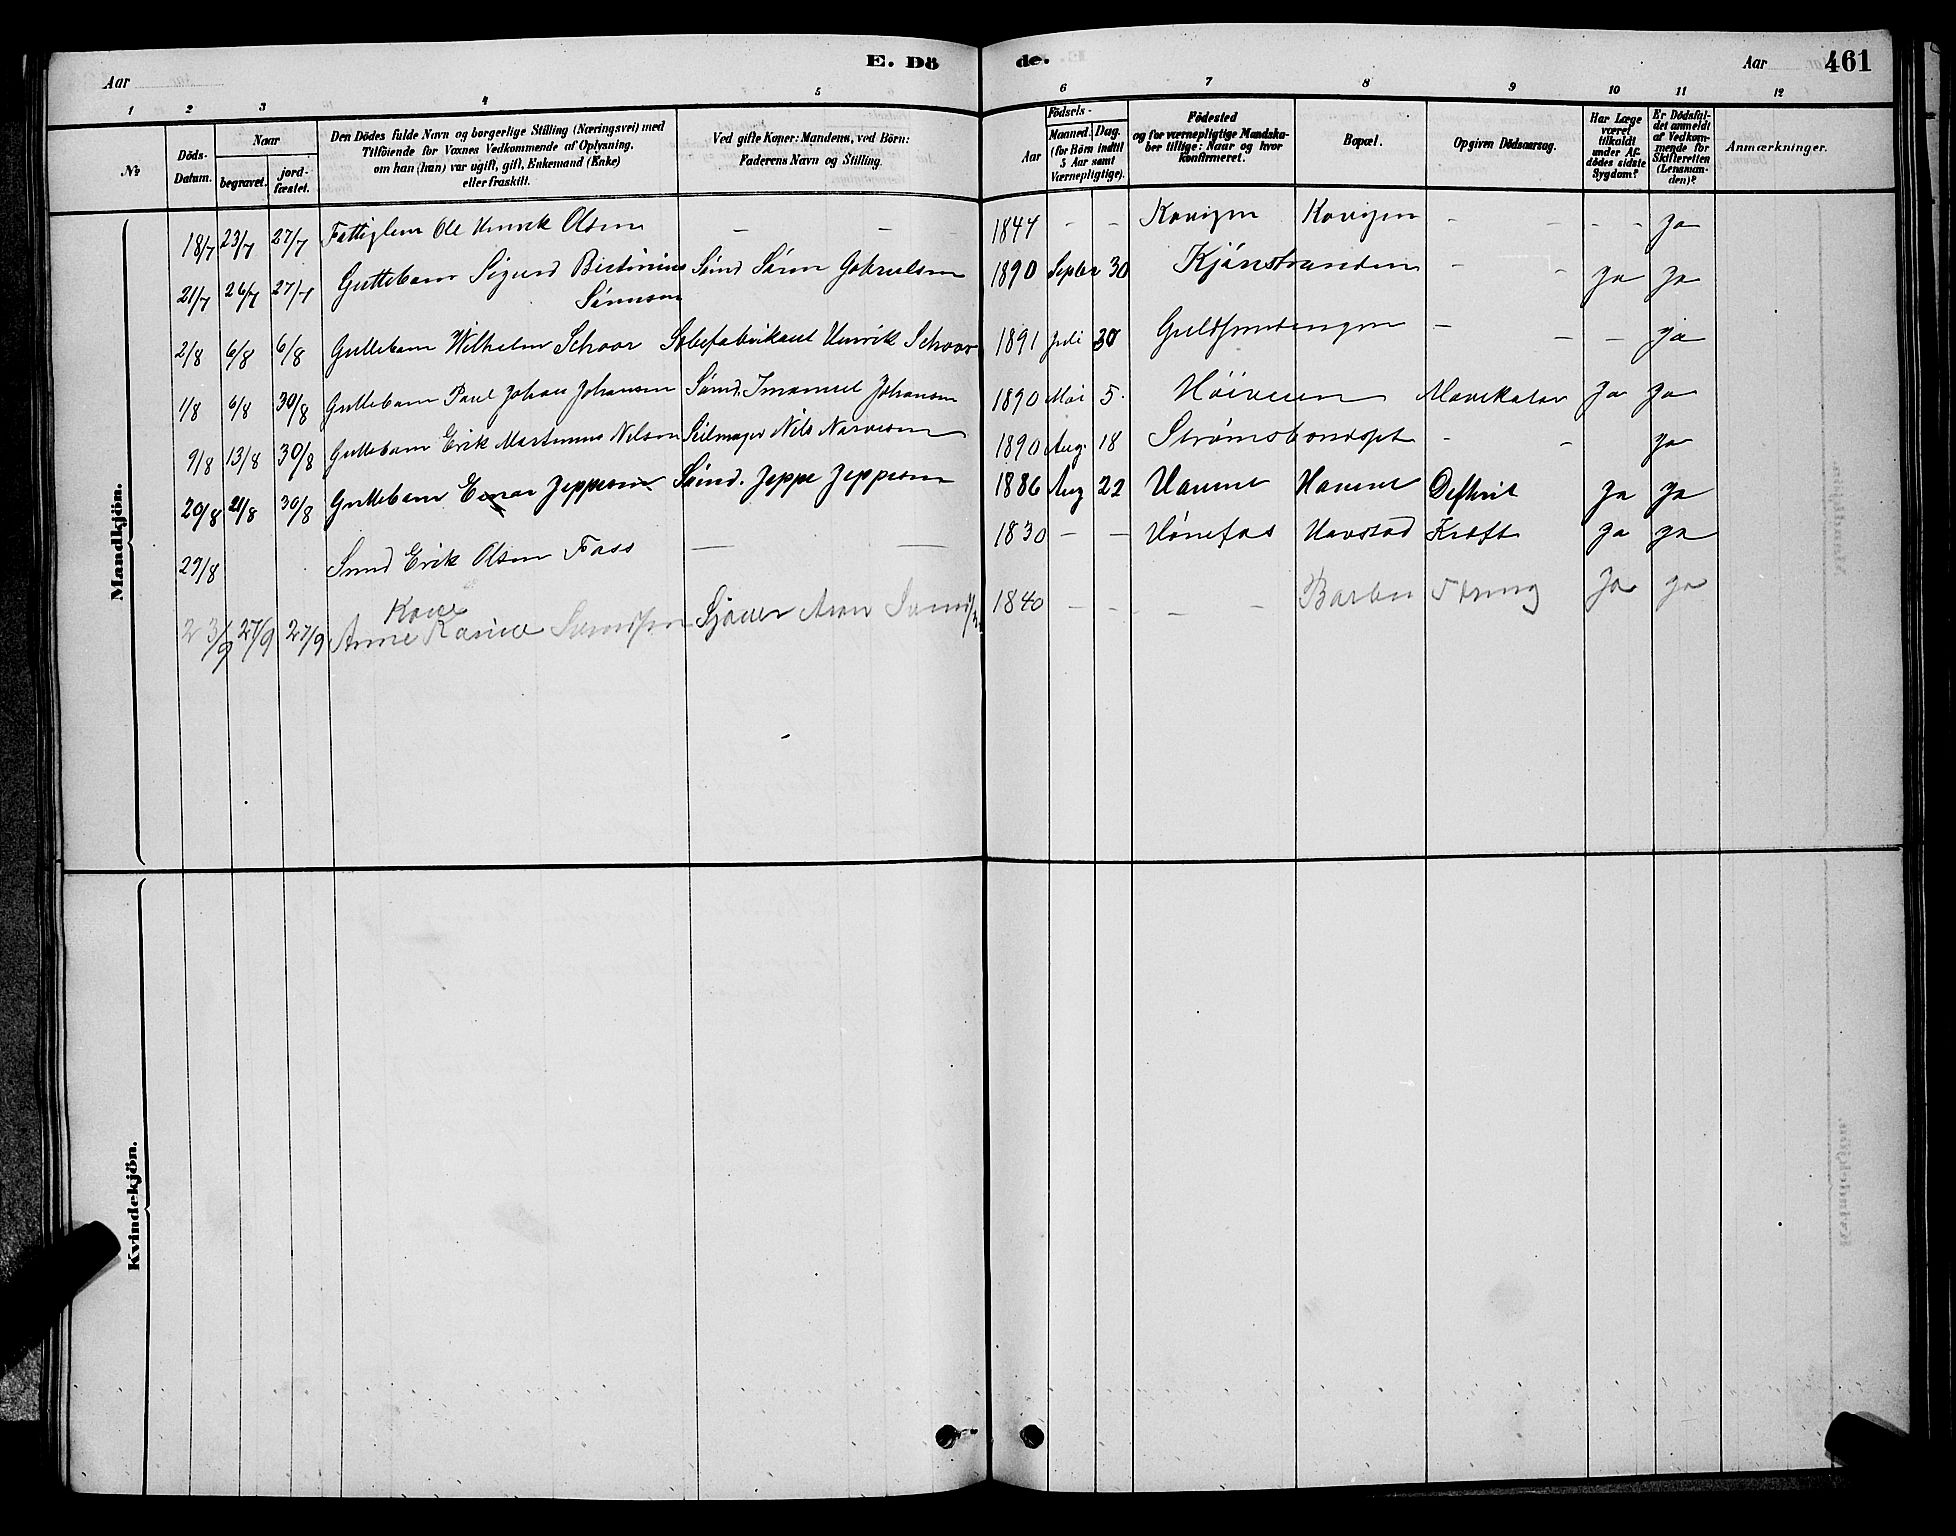 E. Dö de.
Aar
Aar
461
1 2 3 4 5 6 7 8 9 10 11 12
No
Döds-Datum.
Naar
begravet.
jord-fæstet.
Den Dödes fulde Navn og borgerlige Stilling (Næringsvei) med
Tilföiende for Voxnes Vedkommende af Oplysning,
om han (hun) var ugift, gift, Enkemand (Enke)
eller fraskilt.
Ved gifte Koner: Mandens, ved Börn:
Faderens Navn og Stilling.
Födsels-
Aar
Maaned. Dag.
(for Börn indtil
5 Aar samt
Værnepligtige).
Födested
og for værnepligtige Mandska-
ber tillige: Naar og hvor
konfirmeret.
Bopæl.
Opgiven Dödsaarsag.
Har Læge
været
tilkaldt
under Af-
dödes sidste
Sygdom?
Er Dödsfal-
det anmeldt
af Vedkom-
mende for
Skifteretten
(Lensman-
den)?
Anmærkninger.
Mandkjön.
18/7 23/7 27/7 Fattiglem Ole Henrik Olsen — — 1847 - - - - - ja
21/7 26/7 27/7 Guttebarn Sigurd Sömd Sören 1890 Septbr 30 Kjönstranden - - ja ja
2/8 6/8 6/8 Guttebarn Wilhelm Schaar Henrik Schaar 1891 Juli 30 - - - ja
1/8 6/8 30/8 Guttebarn Paul Johan Johansen Sömd. Imanuel Johansen 1890 Mai 5. Höiveien Mavekatar ja ja
9/8 13/8 30/8 Guttebarn Erik Martinius Nilsen Seilmager Nils 1890 Aug. 18 - - ja
20/8 21/8 30/8 Guttebarn Einar Jeppesen Sömd. Jeppe Jeppesen 1886 Aug 22 Havene Havene Difterit ja ja
29/8 Erik Olsen Foss — — 1830 - - Hönefos Havstad Kræft ja ja
Kone
23/9 27/9 27/9 Anne 1840 - - - - Barbu Tæring ja ja
Kvindekjön.